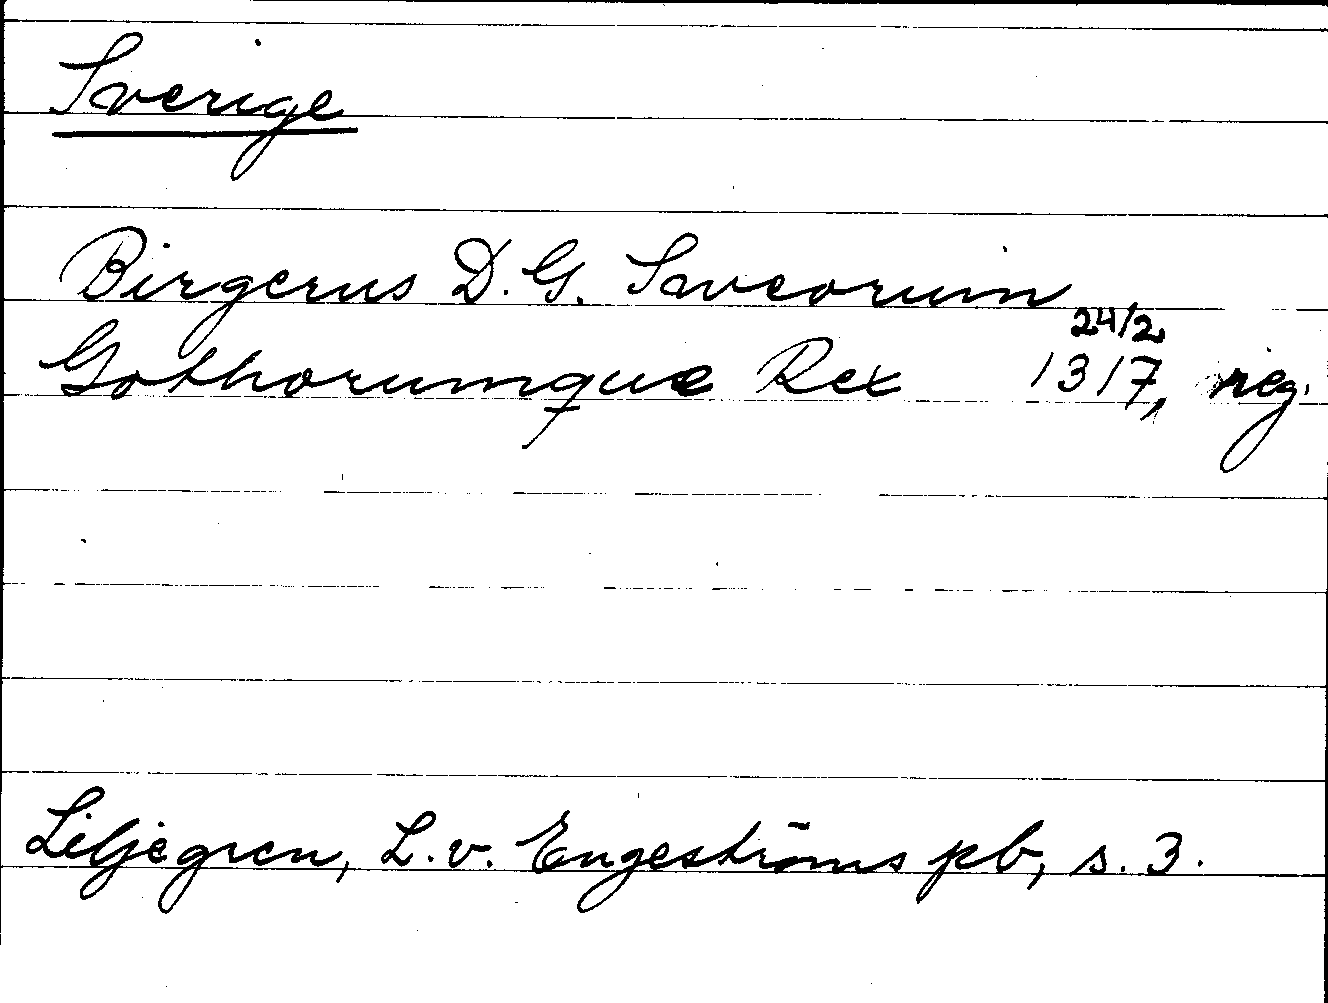 Sverige
Birgerus D. G. Sweorum
24/2
Gothorumque Rex 1317, reg.
Liljegren, L. v. Engeströms pb, s. 3.